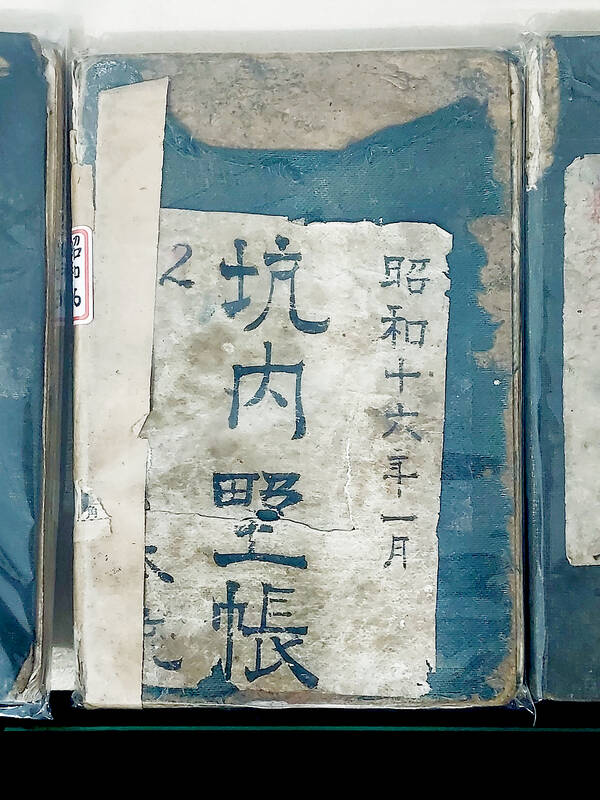 昭和十六年一月
坑内野帳
2
昭和